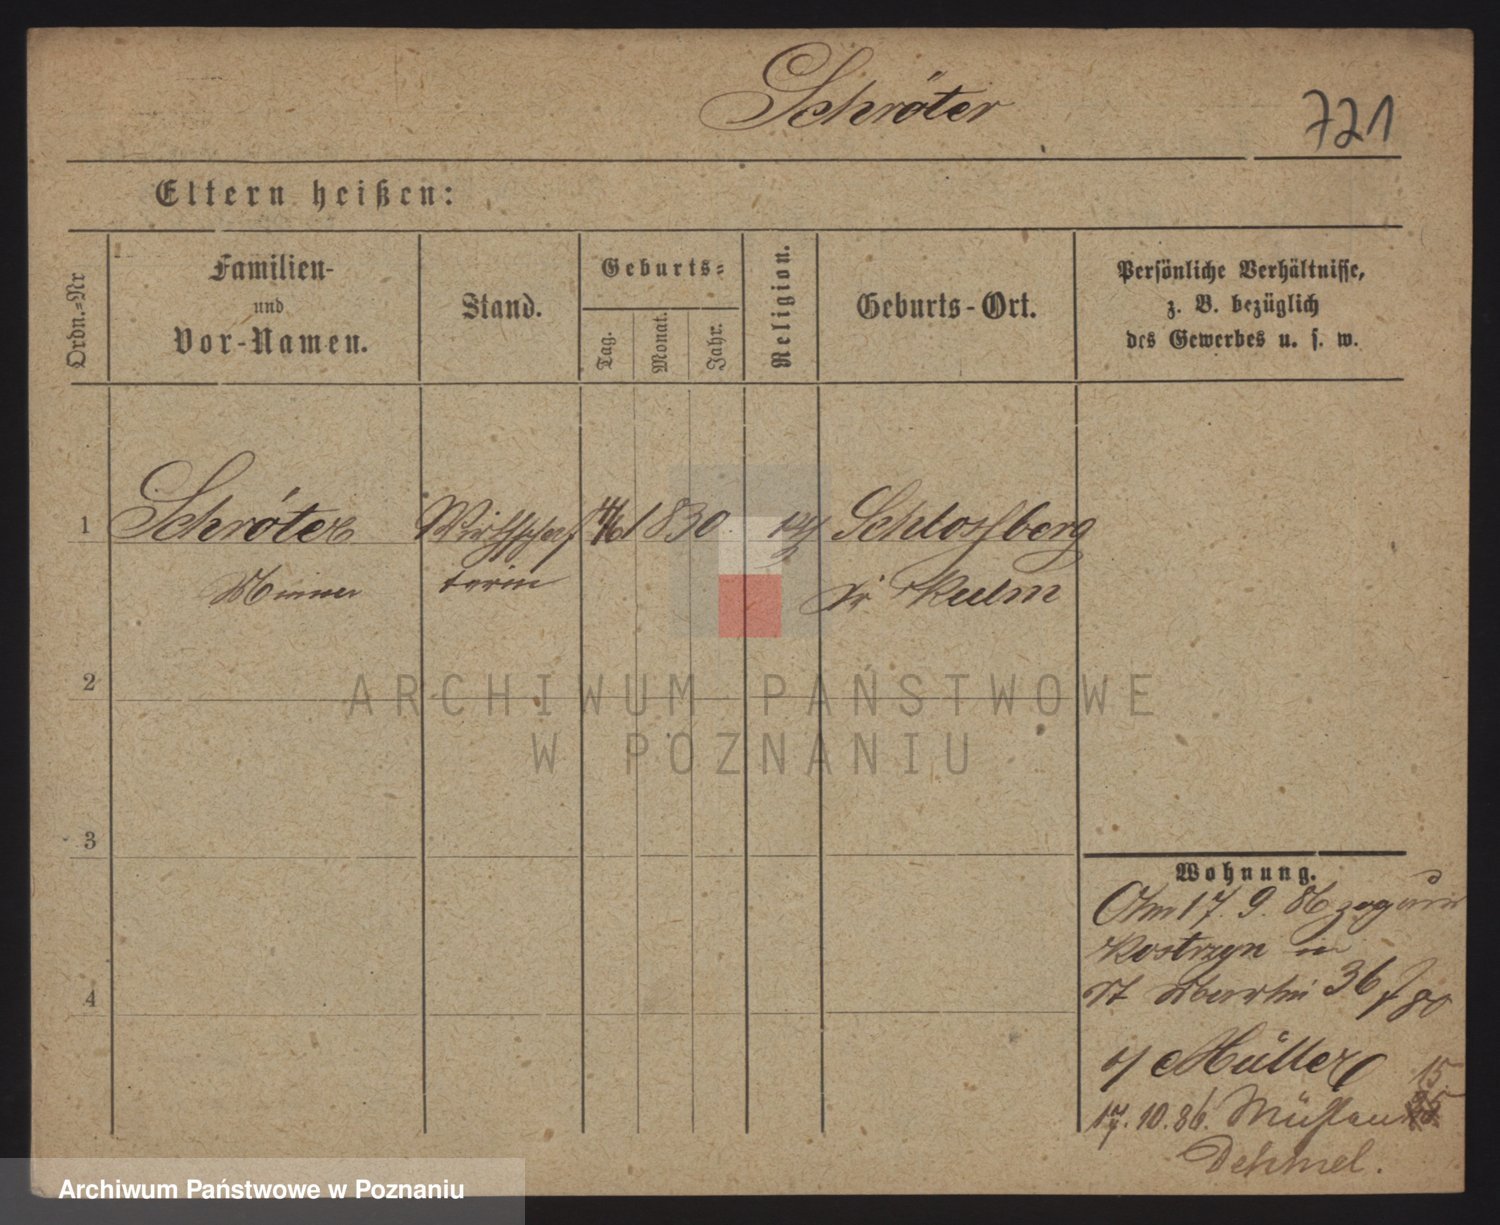 Schröter
721
Eltern heißen:
Ordn.-Nr
Familien-
und
Vor-Namen.
Stand.
Geburts-
Tag.
Monat.
Jahr.
Religion.
Geburts-Ort.
Persönliche Verhältnisse,
z. B. bezüglich
des Gewerbes u. s. w.
1 Schröter Wirthschaf 1830 Schlossberg
Minna terin Kr Kulm
2
ARCHIWUM PAŃSTWOWE
W POZNANIU
3
Wohnung.
Am 17. 9. 86 zog
Kostrzyn in
St Martin 36
Müller
15
17. 10. 86. Mühlen
Dehmel.
4
Archiwum Państwowe w Poznaniu